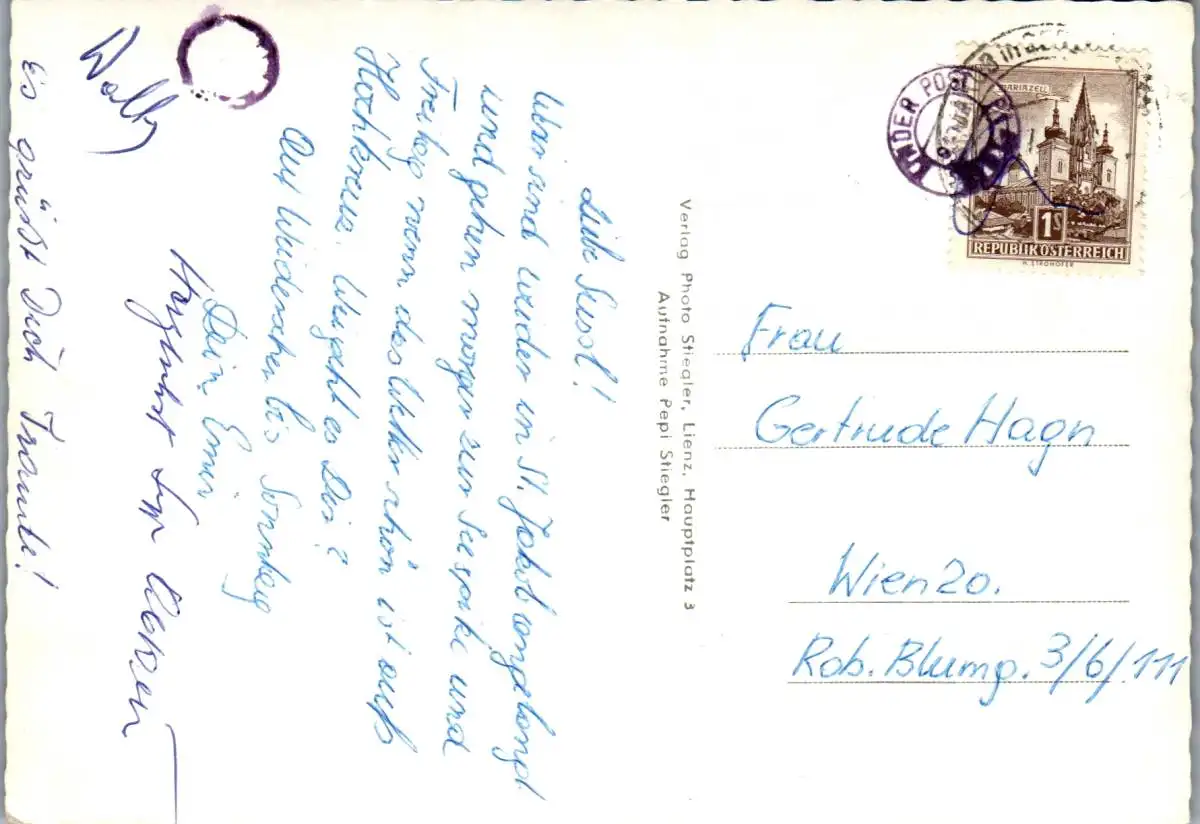 Liebe Sussl!
Wir sind wieder in St. Jakob angelangt
und gehen morgen zur Seespitze und
Freitag wenn das Wetter schön ist aufs
Hochkreuz. Wie geht es Dir?
Auf Wiedersehen bis Sonntag
Dein Emmi
Herzlichst
Es grüßt Dich Traute!
Wally
Verlag Photo Stiegler, Lienz, Hauptplatz 3
Aufnahme Pepi Stiegler
KINDER POST
MARIAZELL
1S
REPUBLIK ÖSTERREICH
H. STROHOFER
Frau
Gertrude Hagn
Wien 20.
Rob. Blumg. 3/6/111